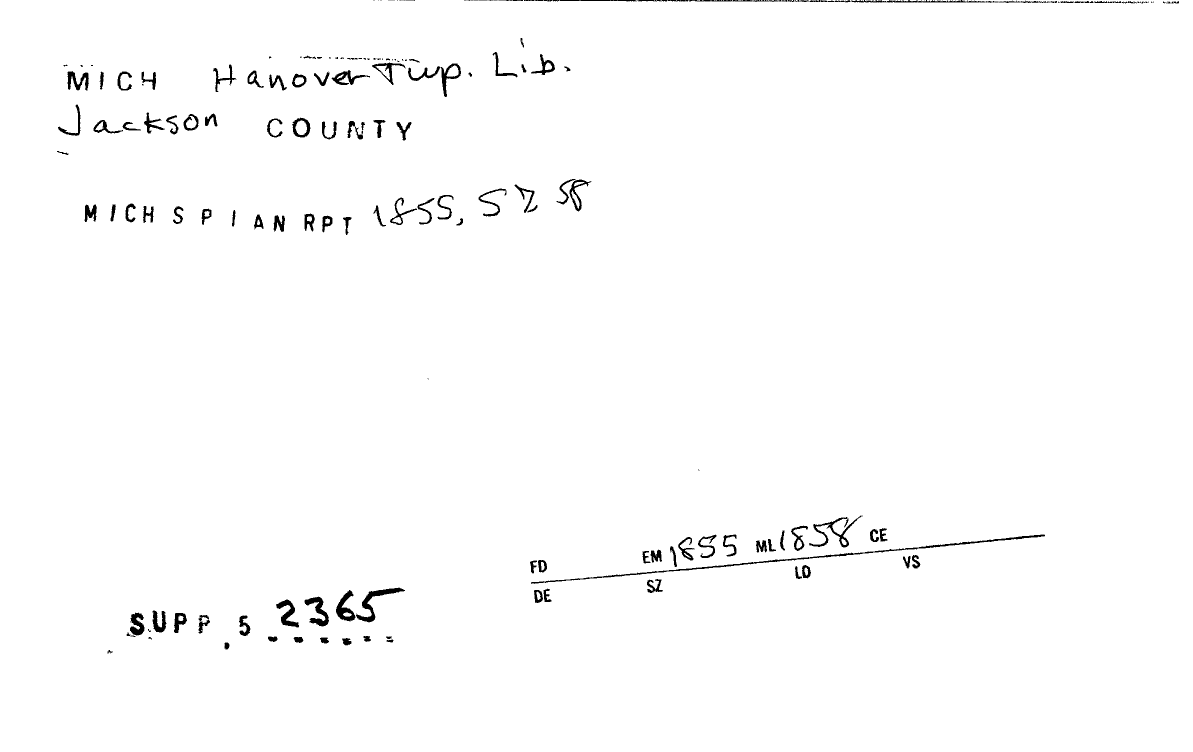 MICH Hanover Twp. Lib.
Jackson COUNTY
MICH S P I AN RPT 1855, 57 58
FD EM 1855 ML 1858 CE
DE SZ LD VS
SUPP. 5 2365